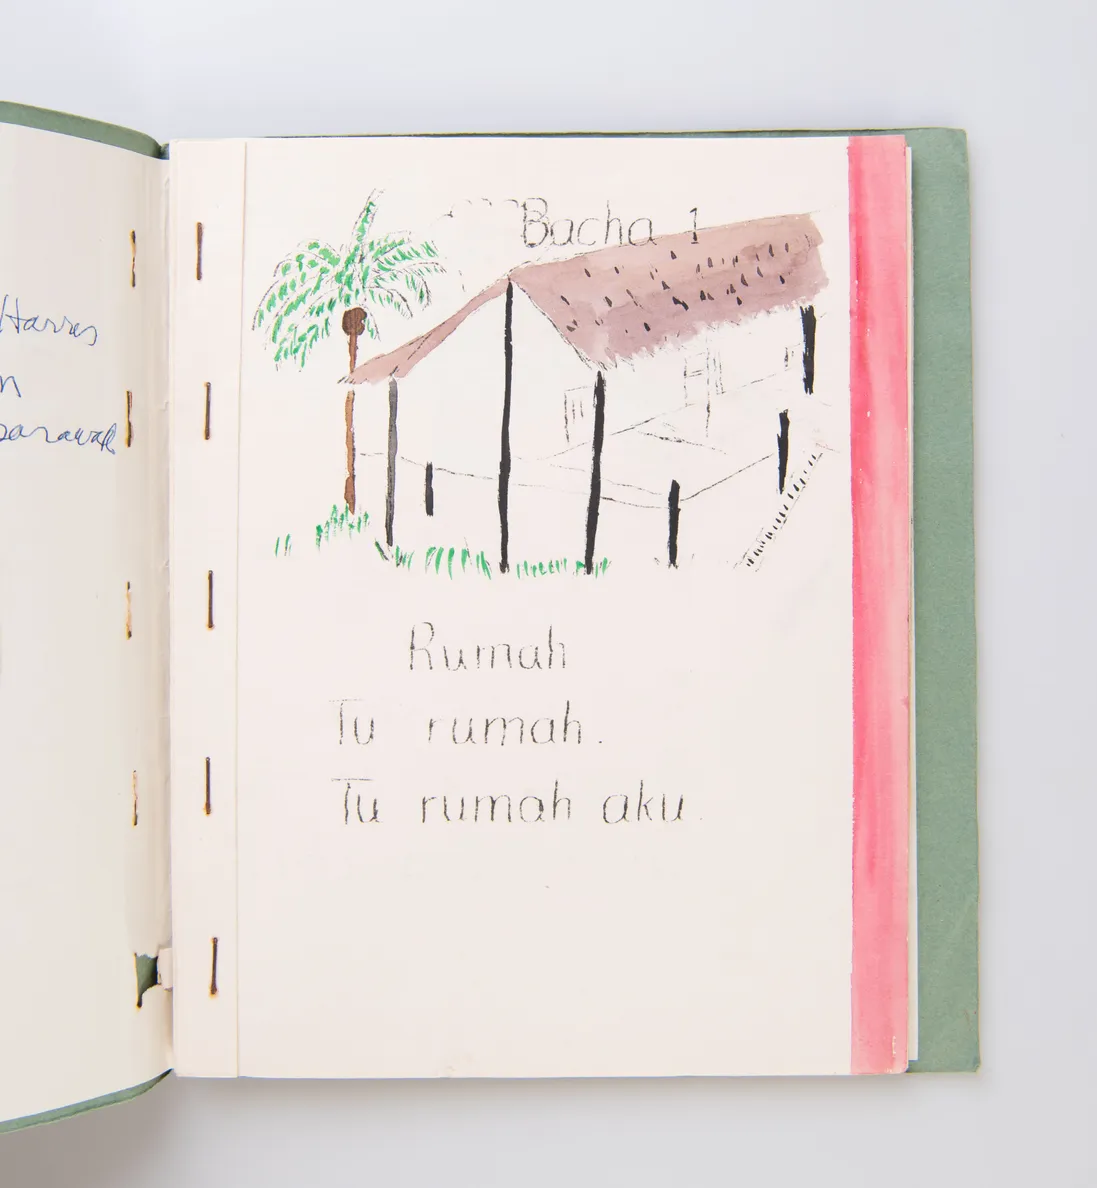 Harris
n
Sarawak
Bacha 1
Rumah
Tu rumah.
Tu rumah aku.